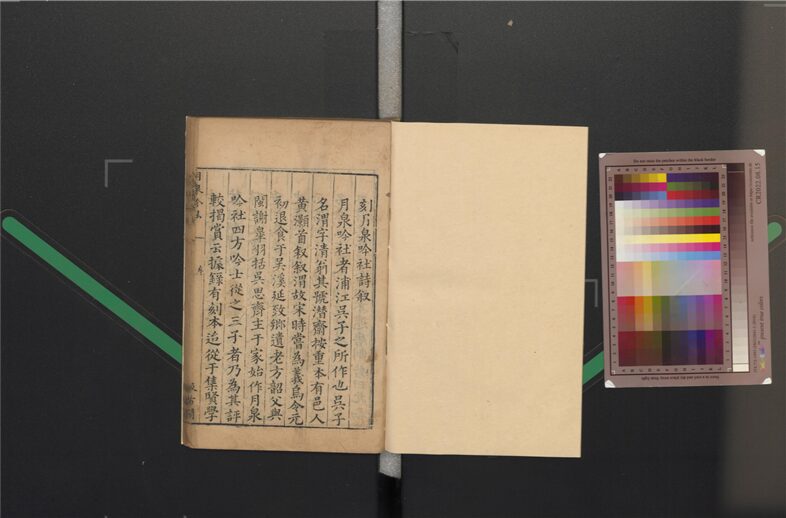 刻月泉吟社詩叙
月泉吟社者浦江吳子之所作也吳子
名渭字清翁其號潛齋按重本有邑人
黄灝首叙叙渭故宋時嘗為義烏令元
初退食于吳溪延致鄉遺老方韶父與
閩謝皋羽括吳思齊主于家始作月泉
吟社四方吟士從之三子者乃為其評
較揭賞云據錄有刻本迨從于集賢學
月泉吟社 一 序
Do not remove the patches within the black border
CR2022.08.15